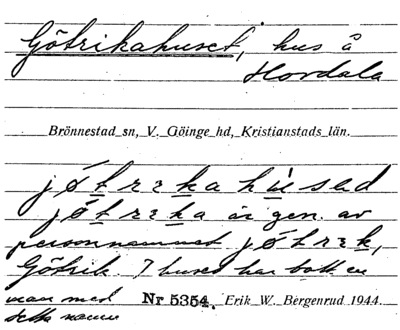 Götrikahuset, hus å
Hordala
Brönnestad sn, V. Göinge hd, Kristianstads län.
jǿtrıka hu̇̀sad
jǿtrıka är gen. av
personnamnet jǿtrık,
Götrik. I huset har bott en
man med Nr 5354. Erik W. Bergenrud 1944.
detta namn